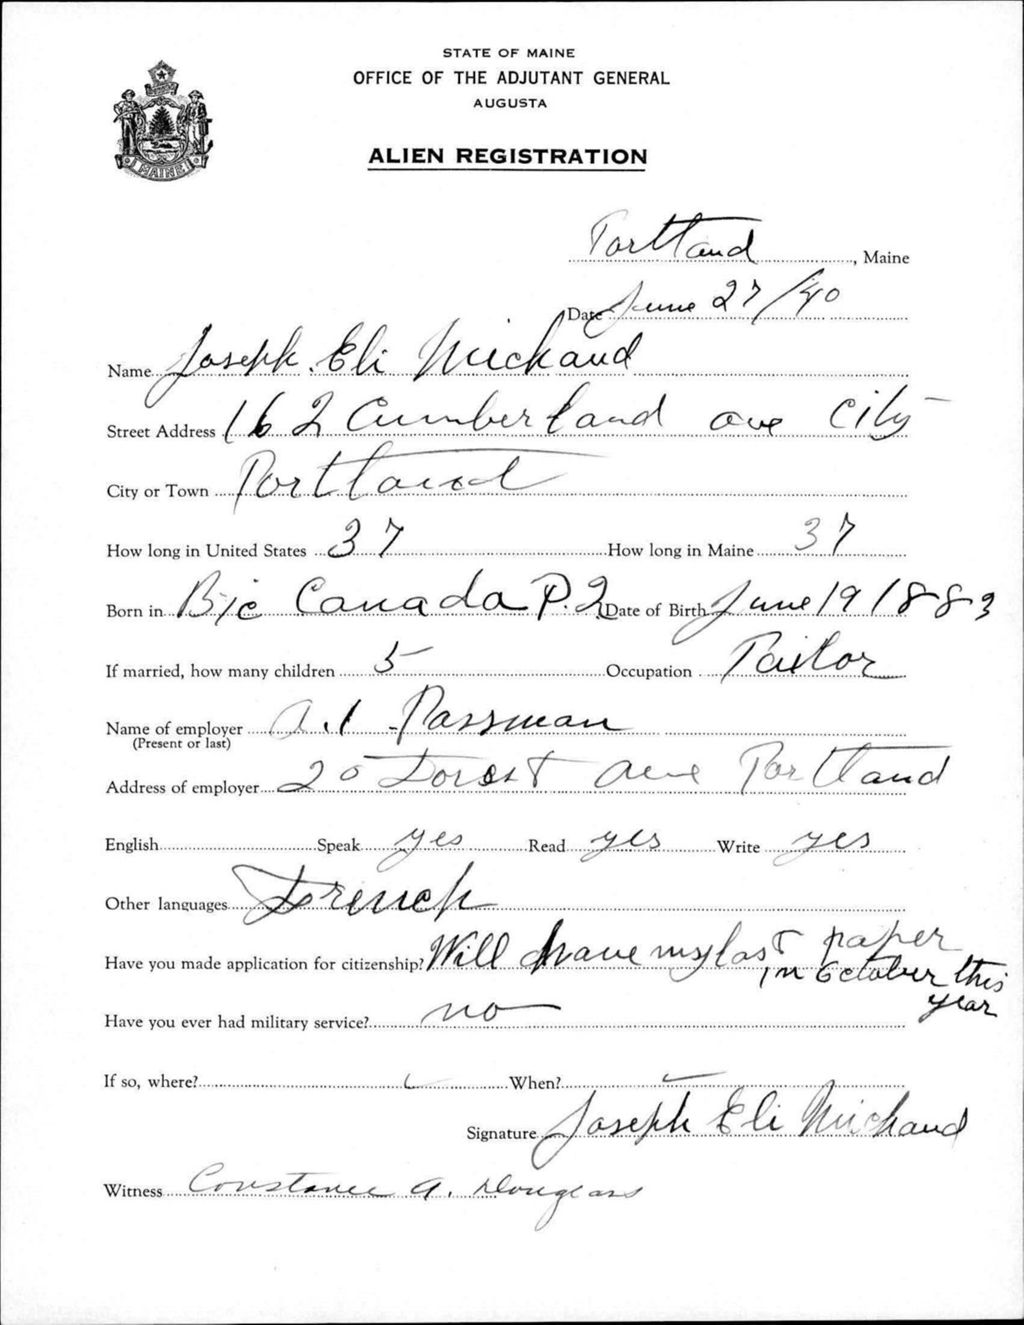 STATE OF MAINE
OFFICE OF THE ADJUTANT GENERAL
AUGUSTA
ALIEN REGISTRATION
MAINE
Portland, Maine
Date June 27/40
Name Joseph Eli Michaud
Street Address 162 Cumberland ave City
City or Town Portland
How long in United States 37 How long in Maine 37
Born in Bic Canada P.Q Date of Birth June 19 1883
If married, how many children 5 Occupation Tailor
Name of employer A.I Passman
(Present or last)
Address of employer 20 Forest ave Portland
English Speak yes Read yes Write yes
Other languages French
Have you made application for citizenship? Will have my last paper
in October this
year
Have you ever had military service? no
If so, where? When?
Signature Joseph Eli Michaud
Witness Constance A. Douglass